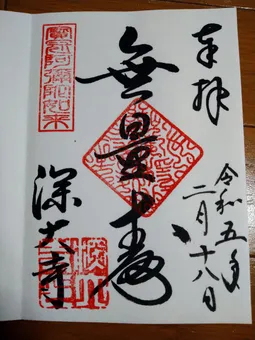 奉拝
令和五年
二月十八日
無量寿
寳冠阿彌陀如来
深大寺